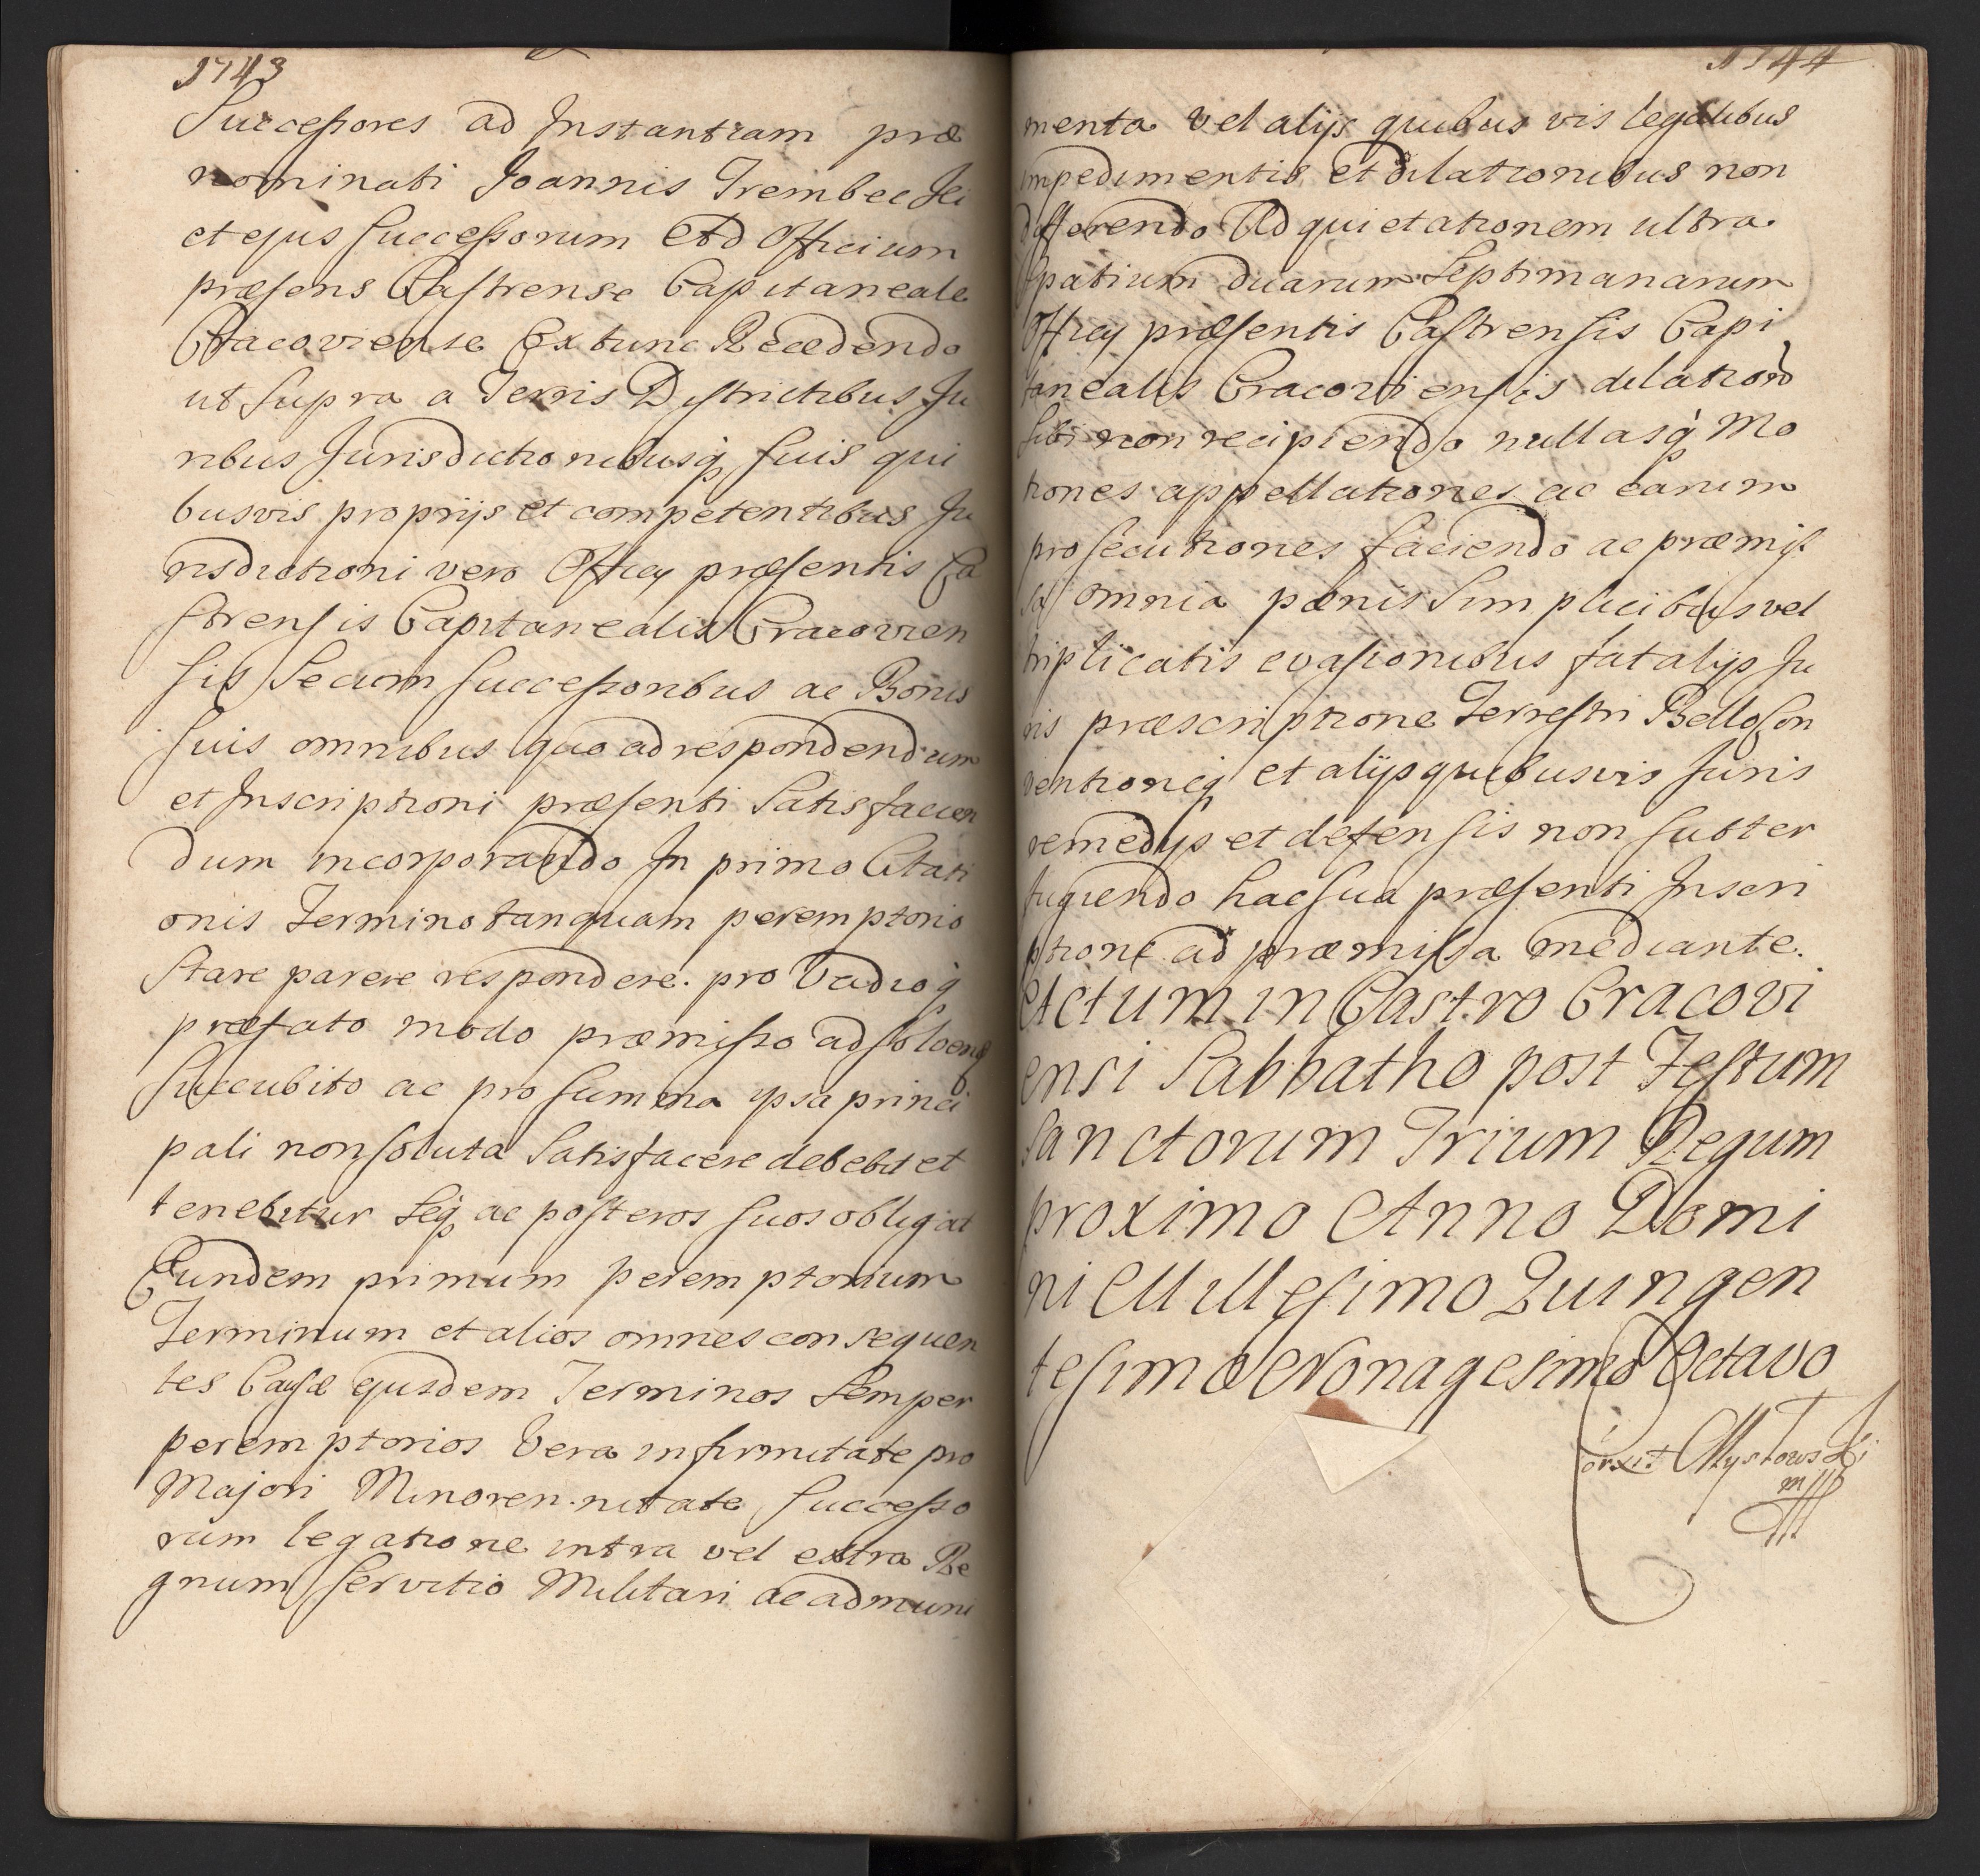 1743
Successores ad Instantiam præ
nominati Joannis Trembecki
et ejus Successorum Ad Officium
præsens Castrense Capitaneale
Cracoviense Ex tunc Recedendo
ut supra a Terris Districtibus Ju
ribus Jurisdictionibusq suis qui
busvis proprijs et competentibus Ju
risdictioni vero Officij præsentis Ca
strensis Capitanealis Cracovien
sis Secum Successoribus ac Bonis
suis omnibus quo ad respondendum
et Inscriptioni præsenti Satisfacien
dum incorporando In primo Citati
onis Termino tanquam peremptorio
Stare parere respondere. pro Vadioq
præfato modo præmisso ad solvend
succubito ac pro summa ipsa princi
pali non soluta Satisfacere debebit et
tenebitur Seq ac posteros suos obligat
Eundem primum peremptorium
Terminum et alios omnes consequen
tes Causæ ejusdem Terminos Semper
peremptorios Vera infirmitate pro
Majori Minorennitate Successo
rum legatione intra vel extra Re
gnum Servitio Militari ac admuni
1744
menta vel alijs quibus vis legalibus
impedimentis et dilationibus non
differendo Ad quietationem ultra
spatium duarum Septimanarum
Officij præsentis Castrensis Capi
tanealis Cracoviensis dilation
sibi non recipiendo nullasq Mo
tiones appellationes ac earum
prosecutiones faciendo ac præmis
sa omnia pænis Simplicibus vel
triplicatis evasionibus fatalijs Ju
ris præscriptione Terrestri Bello Con
ventioneq et alijs quibusvis Juris
remedijs et defensis non subter
fugiendo hac sua præsenti Inscri
ptione ad præmissa mediante.
Actum in Castro Cracovi
ensi Sabbatho post Festum
Sanctorum Trium Regum
proximo Anno Domi
ni Millesimo Quingen
tesimo Nonagesimo Octavo
Corxit